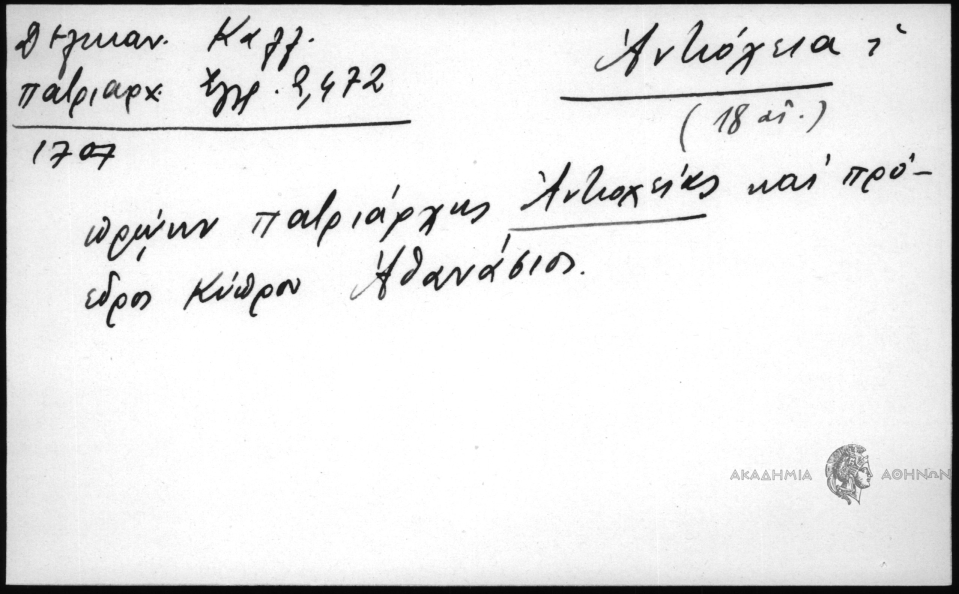 Δελικαν. Καλλ.
Πατριαρχ. Ἔγγρ. 2,472
Ἀντιόχεια ἡ
(18 αἰ.)
1707
πρώην Πατριάρχης Ἀντιοχείας καὶ πρό-
εδρος Κύπρου Ἀθανάσιος.
ΑΚΑΔΗΜΙΑ ΑΘΗΝΩΝ